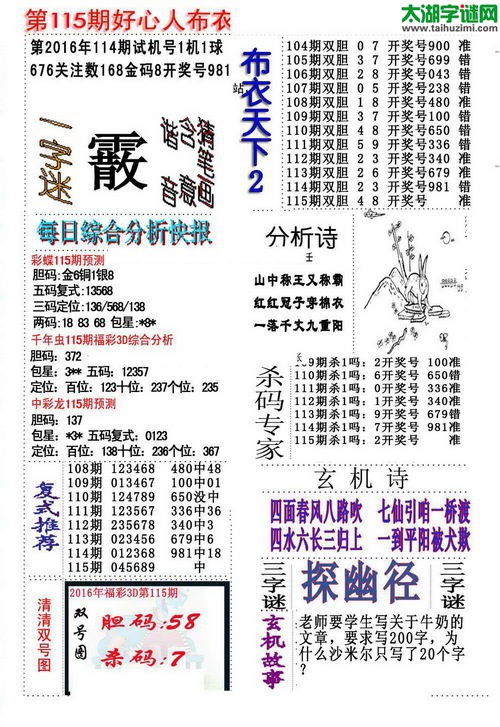 太湖字谜网
www.taihuzimi.com
第115期好心人布衣
第2016年114期试机号1机1球
676关注数168金码8开奖号981
一字迷
霰
猜含猪
笔画
意
音
每日综合分析快报
彩蝶115期预测
胆码:金6铜1银8
五码复式:13568
三码定位:136/568/138
两码:18 83 68 包星:*8*
千年虫115期福彩3D综合分析
胆码:372
包星:3** 五码:12357
定位:百位:123十位:237个位:235
中彩龙115期预测
胆码:137
包星:*3* 五码复式:0123
定位:百位:138十位:236个位:367
复式推荐
108期 123468 480中48
109期 013467 100中01
110期 124789 650没中
111期 123567 336中36
112期 235678 340中3
113期 023456 679中6
114期 012368 981中18
115期 045689 中
清清双号图
2016年福彩3D第115期
双号图
胆码:58
杀码:7
站
布衣天下2
104期双胆 0 7 开奖号900 准
105期双胆 3 7 开奖号699 错
106期双胆 2 8 开奖号043 错
107期双胆 0 5 开奖号238 错
108期双胆 1 8 开奖号480 准
109期双胆 3 7 开奖号100 错
110期双胆 4 8 开奖号650 错
111期双胆 5 9 开奖号336 错
112期双胆 2 3 开奖号340 准
113期双胆 2 6 开奖号679 准
114期双胆 2 3 开奖号981 错
115期双胆 4 8 开奖号 准
分析诗
王
山中称王又称霸
红红冠子穿棉衣
一落千丈九重阳
杀码专家
109期杀1吗:2开奖号 100准
110期杀1吗:6开奖号 650错
111期杀1吗:0开奖号 336准
112期杀1吗:0开奖号 340错
113期杀1吗:9开奖号 679错
114期杀1吗:7开奖号 981准
115期杀1吗:2开奖号 准
玄机诗
四面春风八路吹 七仙引咱一桥渡
四水六长三归上 一到平阳被犬欺
三字谜
探幽径
三字谜
玄机故事
老师要学生写关于牛奶的
文章，要求写200字，为
什么沙米尔只写了20个字
？